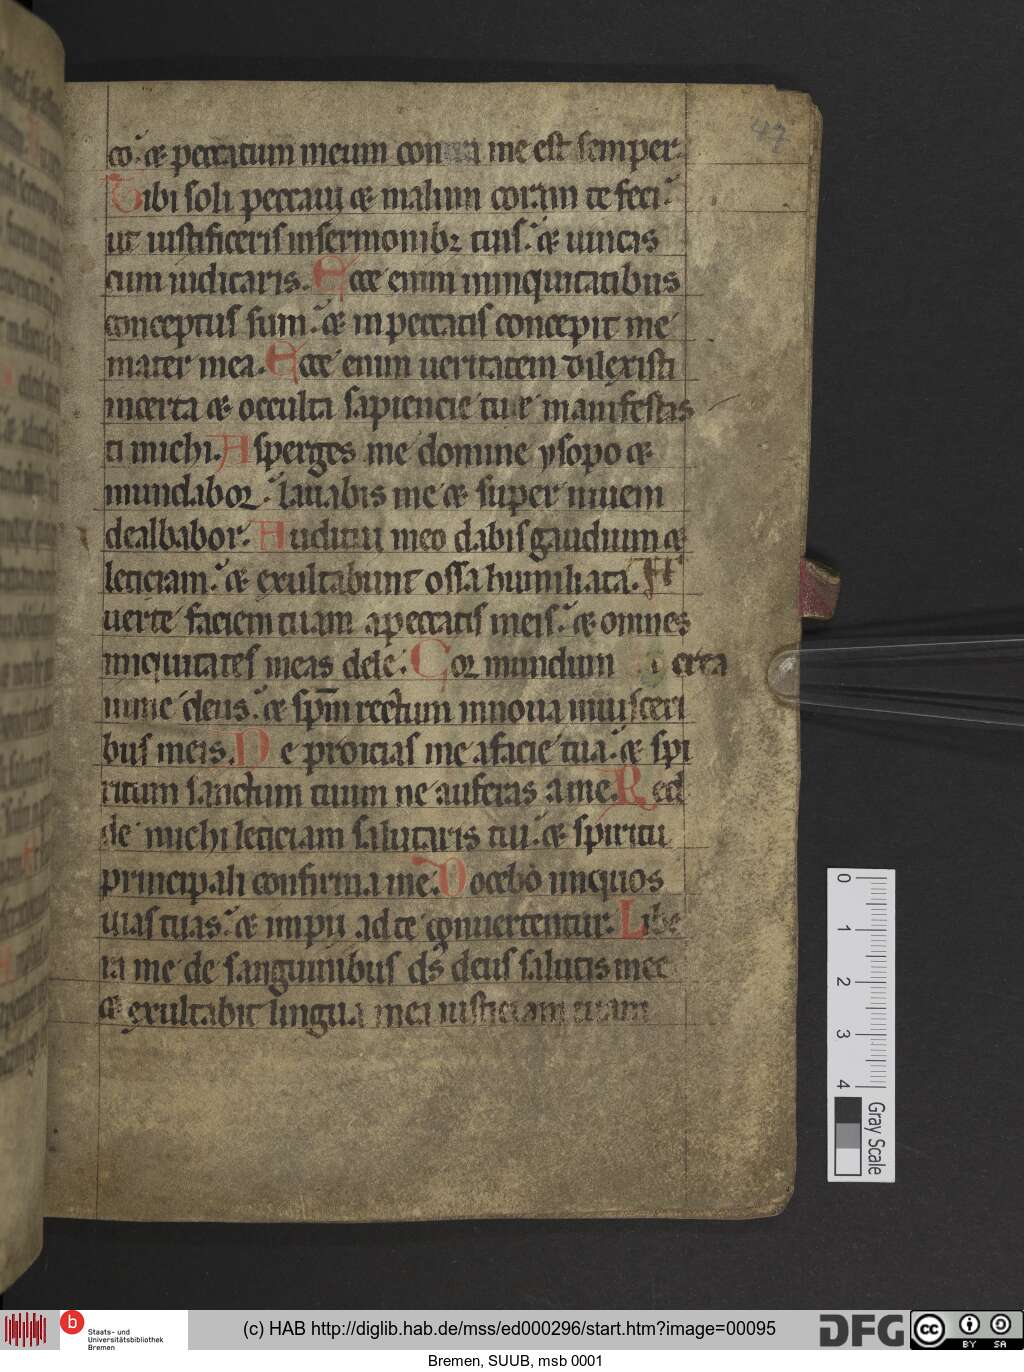 47
co. & peccatum meum contra me est semper.
Tibi soli peccaui & malum coram te feci.
ut iustificeris in sermonibꝫ tuis. & uincas
cum iudicaris. Ecce enim in iniquitatibus
conceptus sum. & in peccatis concepit me
mater mea. Ecce enim ueritatem dilexisti
incerta & occulta sapiencie tue manifestas
ti michi. Asperges me domine ysopo &
mundabor. lauabis me & super niuem
dealbabor. Auditui meo dabis gaudium &
leticiam. & exultabunt ossa humiliata. A
uerte faciem tuam a peccatis meis. & omnes
iniquitates meas dele. Cor mundum crea
in me deus. & spm̄ rectum innoua in uisceri
bus meis. Ne proicias me a facie tua. & spi
ritum sanctum tuum ne auferas a me. Red
de michi leticiam salutaris tui. & spiritu
principali confirma me. Docebo iniquos
uias tuas. & impii ad te conuertentur. Libe
ra me de sanguinibus ds̄ deus salutis mee
& exultabit lingua mea iusticiam tuam
0
1
2
3
4
Gray Scale
b
Staats- und
Universitätsbibliothek
Bremen
(c) HAB http://diglib.hab.de/mss/ed000296/start.htm?image=00095
DFG
cc BY SA
Bremen, SUUB, msb 0001